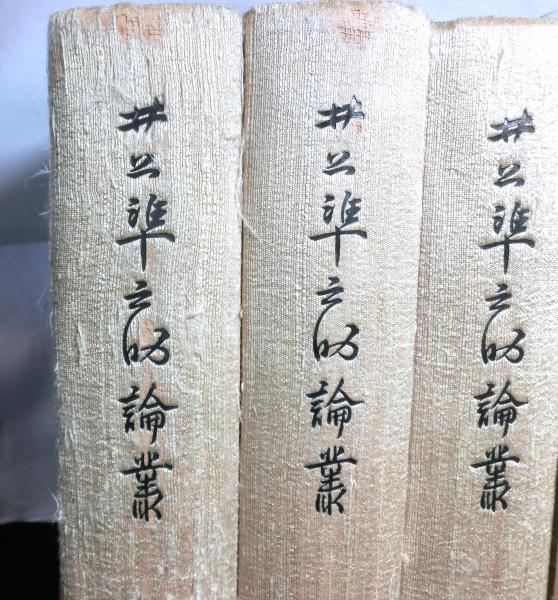 井上準之助論叢
井上準之助論叢
井上準之助論叢